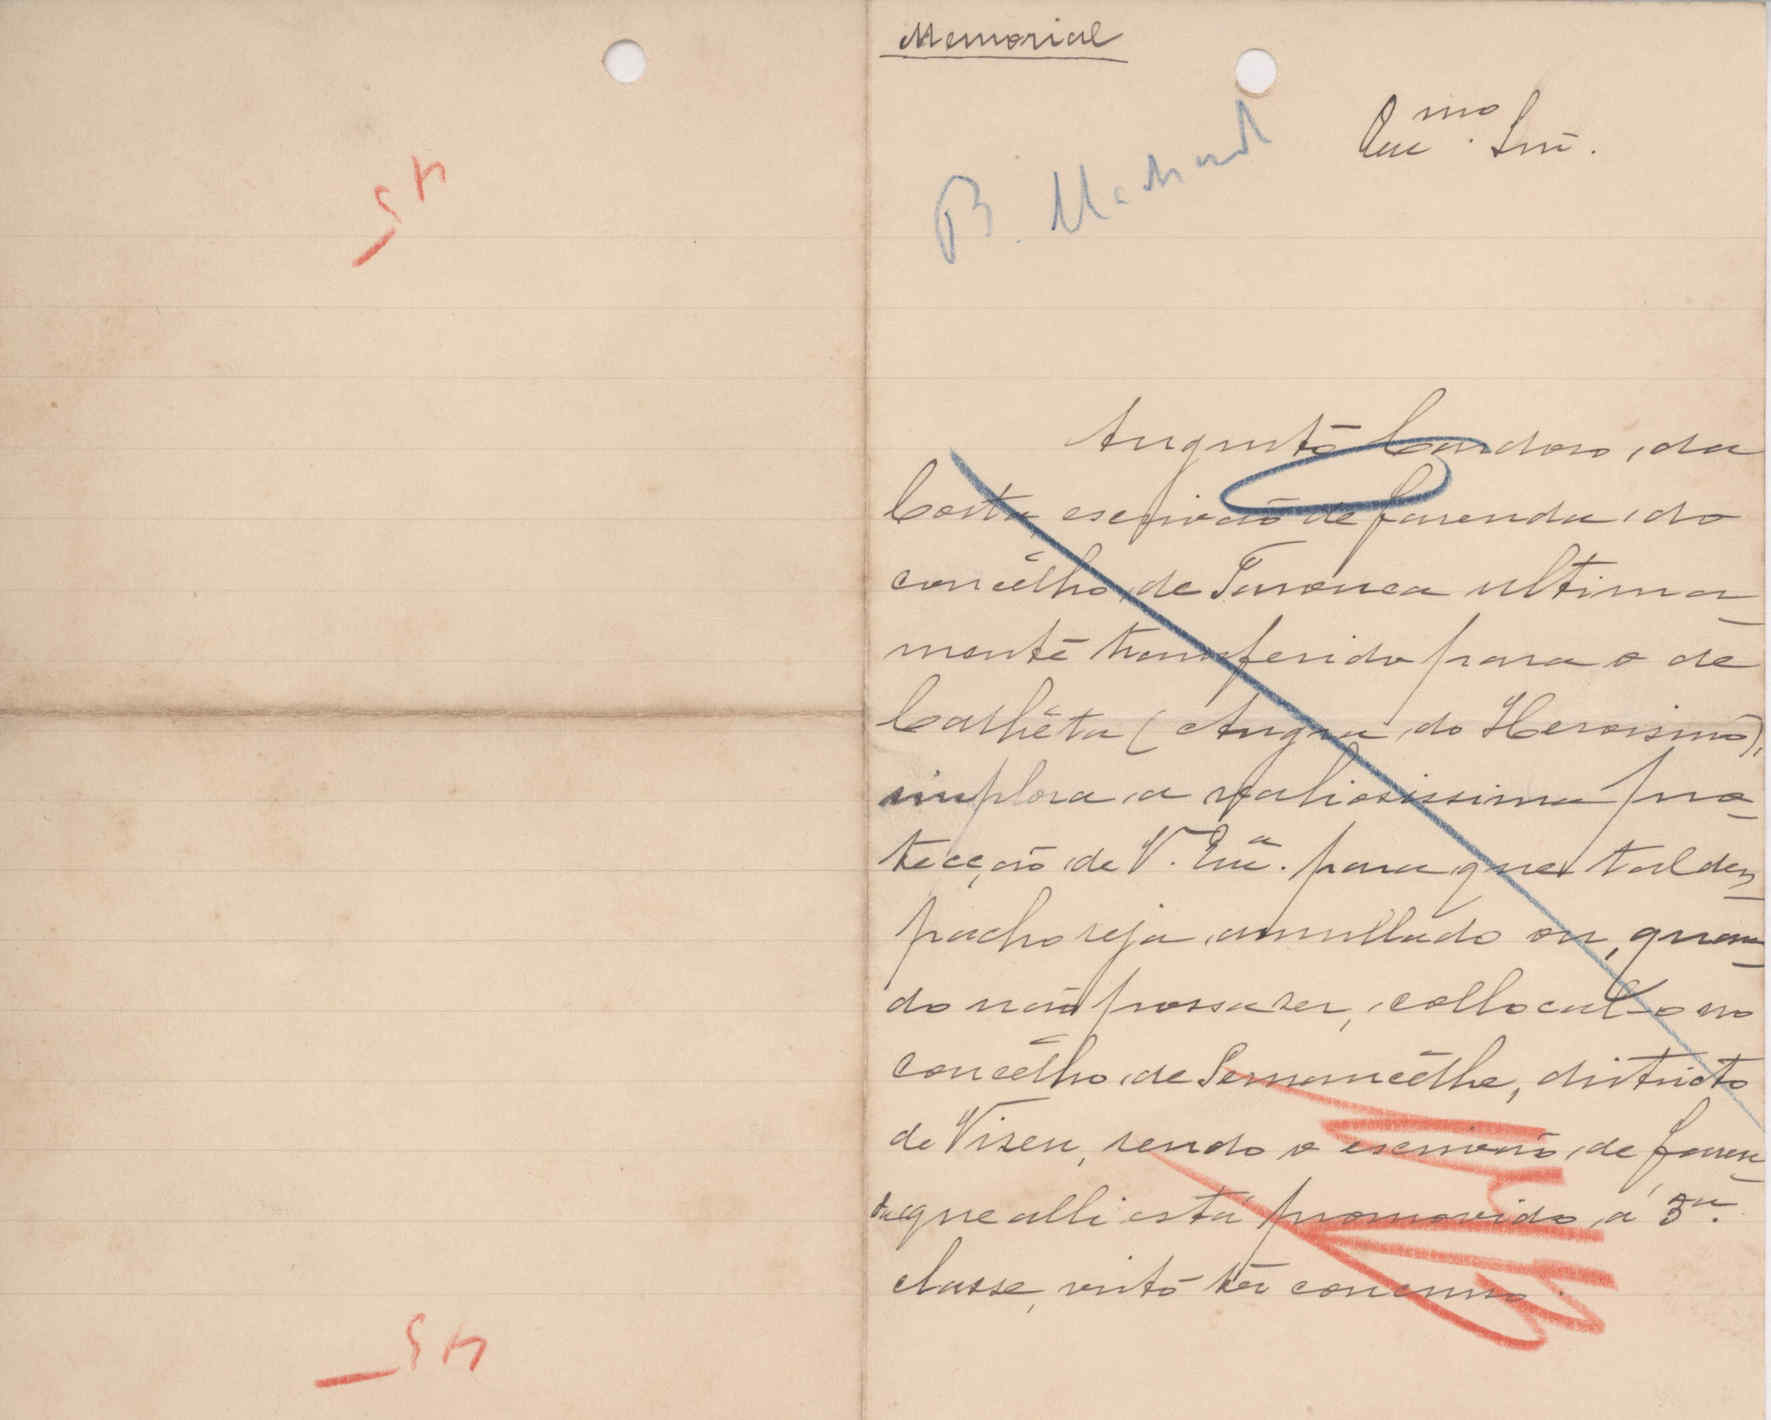 Memorial
Exc.mo Snr.
B. Machado
Augusto Cardoso da
Costa, escrivão de fazenda do
concêlho de Tarouca ultima-
mente transferido para o de
Calhêta (Angra do Heroismo),
implora a valiosissima pro-
tecção de V. Exa. para que tal des-
pacho seja annullado ou, quan-
do não possa ser, collocal-o no
concêlho de Sernancêlhe, districto
de Vizeu, sendo o escrivão de fazen-
da que alli está promovido á 3a.
classe, visto ter concurso.